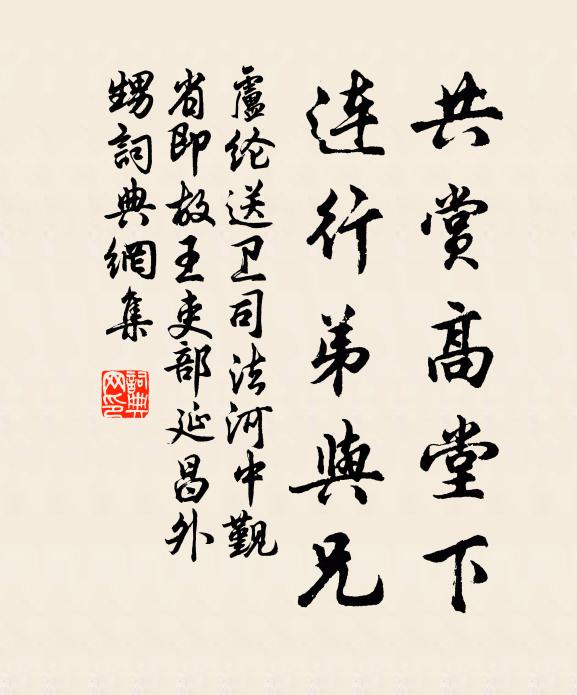 共赏高堂下
连行弟與兄
盧纶送卫司法河中觐
省即故王吏部延昌外
甥詞典網集
詞典网印